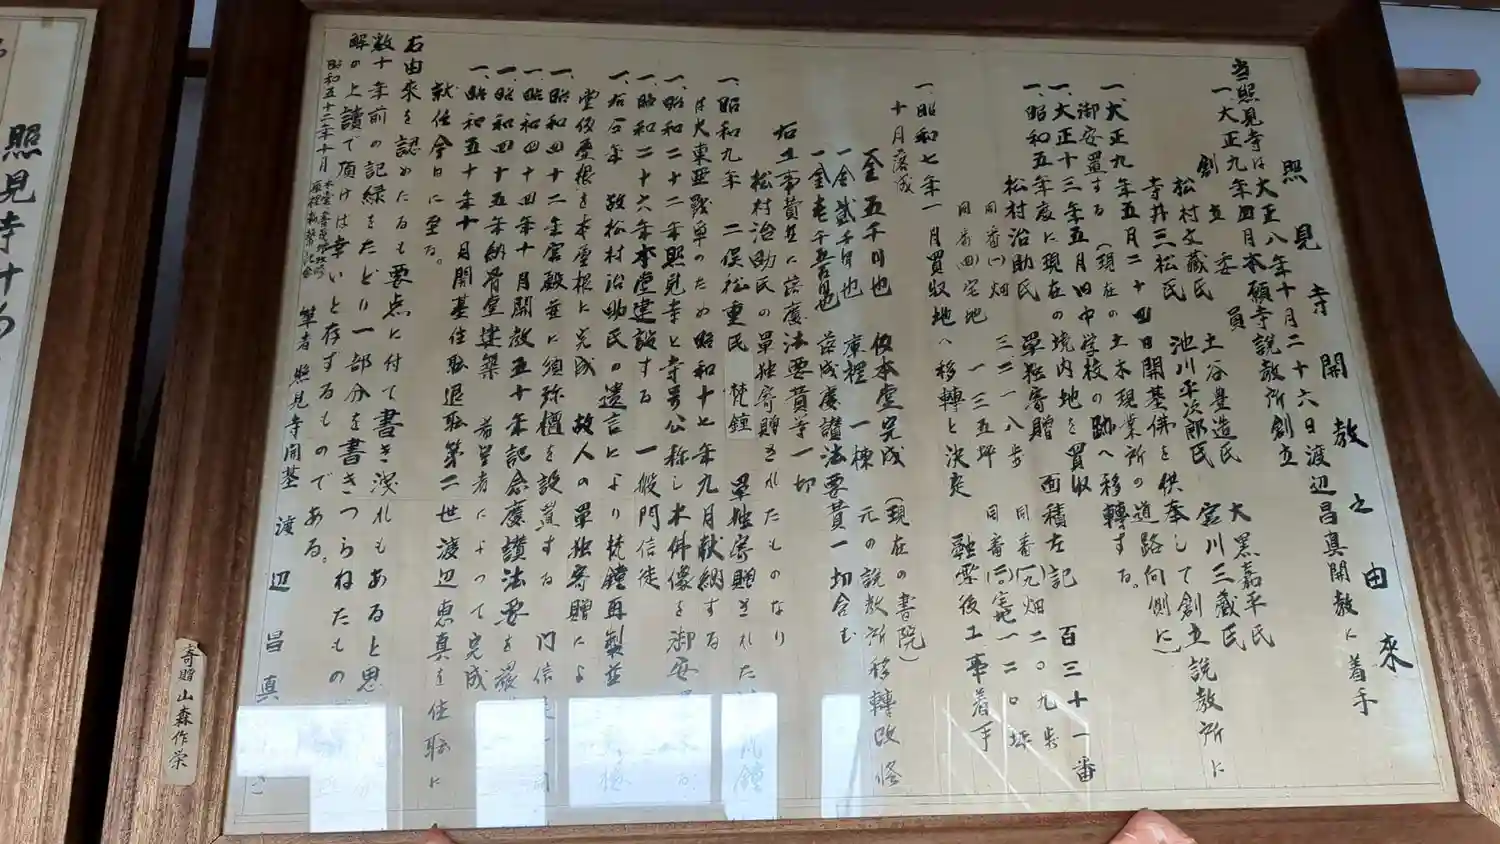 照見寺開教之由来
当照見寺は大正八年十月二十六日渡辺昌真開教に着手
一、大正九年四月本願寺説教所創立
創立委員 土谷豊造氏 大黒嘉平氏
松村文蔵氏 池川平次郎氏 宮川三蔵氏
寺井三松氏
一、大正九年五月二十四日開基佛を供奉して創立説教所に
御安置する(現在の土木現業所の道路向側に)
一、大正十三年五月旧中学校の跡へ移轉する。
一、昭和五年度に現在の境内地を買収
松村治助氏 單独寄贈 面積左記 百三十一番
同番 畑 三二一八歩 同番 畑 二〇九歩
同番 宅地 一三五坪 同番 宅地 一二〇坪
一、昭和七年一月買収地へ移轉と決定 融雪後工事着手
十月落成
一金五千円也 仮本堂完成 (現在の書院)
一金貳千円也 庫裡一棟 元の説教所移轉改修
一金壱千五百円也 落成慶讃法要費一切含む
右工事費並に落慶法要費等一切
松村治助氏の單独寄贈されたものなり
一、昭和九年 二俣松重氏 梵鐘 單独寄贈された 梵鐘
は大東亜戦争のため昭和十七年九月献納する
一、昭和二十二年照見寺と寺号公称し木佛像を御安
一、昭和二十六年本堂建設する 一般門信徒
一、右同年 故松村治助氏の遺言により梵鐘再製並
堂仮屋根を本屋根に完成 故人の單独寄贈によ
一、昭和四十二年宮殿並に須弥檀を設置する 門信徒一同
一、昭和四十四年十月開教五十年記念慶讃法要を厳
一、昭和四十五年納骨堂建築 希望者によって完成
一、昭和五十年十月開基住職退職第二世渡辺恵真を住職に
就任今日に至る。
右由来を認めたるも要点に付て書き洩れもあると思
数十年前の記録をたどり一部分を書きつらねたもの
解の上讀で頂けば幸いと存ずるものである。
昭和五十二年十月
筆者 照見寺開基 渡辺昌真
寄贈 山森作栄
照見寺